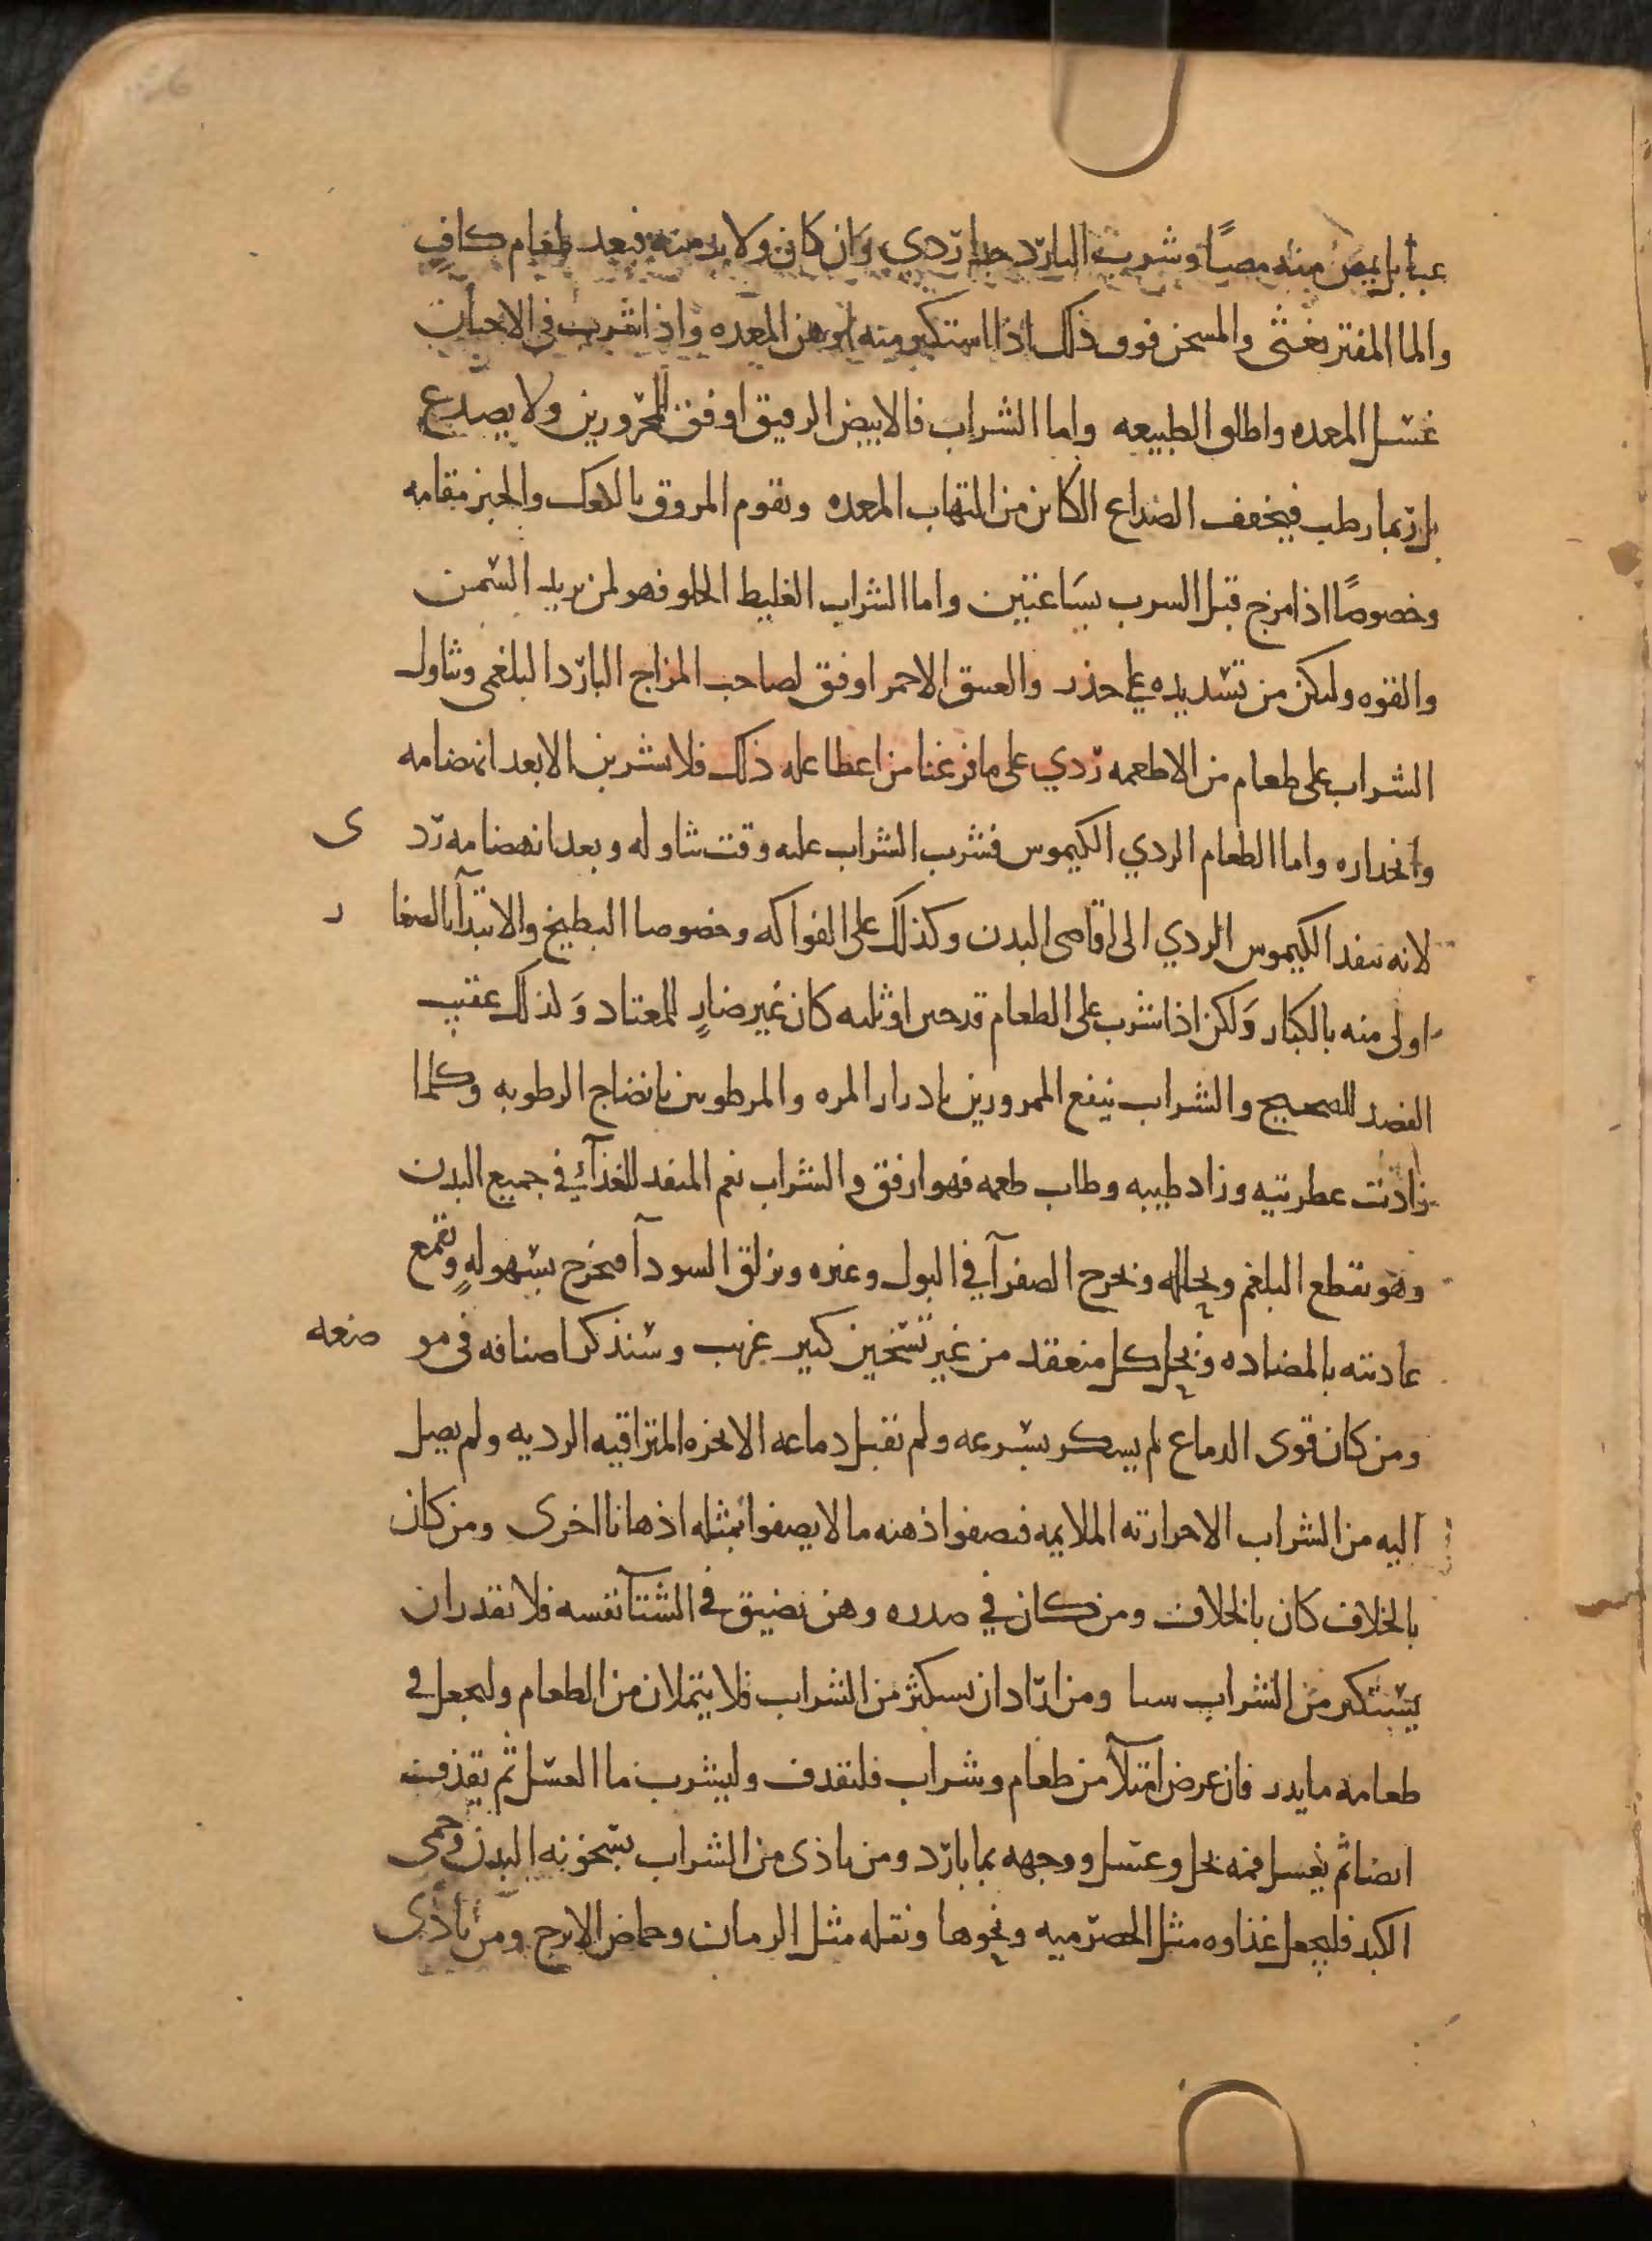 عبا بل يمص منه مصًا وشرب البارد جدا ردي وان كان ولا بد منه فبعد طعام كافٍ
والما المفتر يغثى والمسخن فوق ذلك اذا استكثر منه اوهن المعده واذا شرب فى الاحيان
غسل المعده واطلق الطبيعه واما الشراب فالابيض الرقيق اوفق للمحرورين ولا يصدع
بل ربما رطب فيخفف الصداع الكائن من التهاب المعده ويقوم المروق بالكعك والخبز مقامه
وخصوصًا اذا مزج قبل الشرب بساعتين واما الشراب الغليظ الحلو فهو لمن يريد السمن
والقوه وليكن من تسديده على حذر والعتيق الاحمر اوفق لصاحب المزاج البارد البلغمى وتناول
الشراب على طعام من الاطعمه ردي على ما فرغنا من اعطا عله ذلك فلا يشربن الا بعد انهضامه
وانحداره واما الطعام الردي الكيموس فشرب الشراب عليه وقت تناوله وبعد انهضامه رد ى
لانه ينفد الكيموس الردي الى اقاصى البدن وكذلك على الفواكه وخصوصا البطيخ والابتدآ بالصغا ر
اولى منه بالكبار ولكن اذا شرب على الطعام قدحين او ثلثه كان غير ضارٍ للمعتاد وكذلك عقيب
الفصد للصحيح والشراب ينفع الممرورين بادرار المره والمرطوبين بانضاج الرطوبه وكلما
زادت عطريته وزاد طيبه وطاب طعمه فهو ارفق والشراب نعم المنفد للغذآ فى جميع البدن
وهو يقطع البلغم ويحلله ويخرج الصفرآ فى البول وغيره ويزلق السودآ فيخرج بسهولهٍ ويقمع
عاديته بالمضاده ويحل كل منعقد من غير تسخين كثير غريب وسنذكر اصنافه فى مو ضعه
ومن كان قوى الدماغ لم يسكر بسرعه ولم يقبل دماغه الابخره المتراقيه الرديه ولم يصل
اليه من الشراب الا حرارته الملايمه فيصفوا ذهنه ما لا يصفوا بمثله اذهانا اخرى ومن كان
بالخلاف كان بالخلاف ومن كان في صدره وهن يضيق فى الشتآ نفسه فلا يقدر ان
يستكثر من الشراب شيا ومن اراد ان يستكثر من الشراب فلا يتملان من الطعام وليجعل فى
طعامه ما يدر فان عرض امتلآ من طعام وشراب فليقذف وليشرب ما العسل ثم يقذف
ايضا ثم يغسل فمه بخل وعسل ووجهه بما بارد ومن تاذى من الشراب بسخونه البدن وحمى
الكبد فليجعل غذاوه مثل الحصرميه ونحوها ونقله مثل الرمان وحماض الاترج ومن تاذى